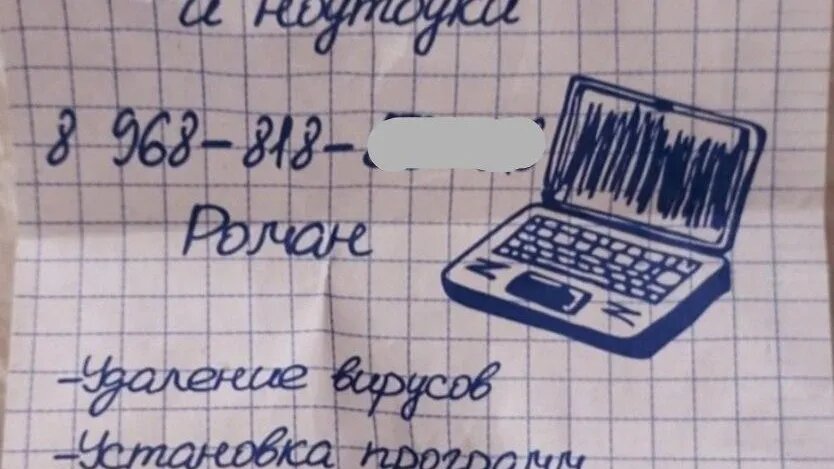 и ноутбуки
8 968-818-
Роман
-Удаление вирусов
-Установка программ